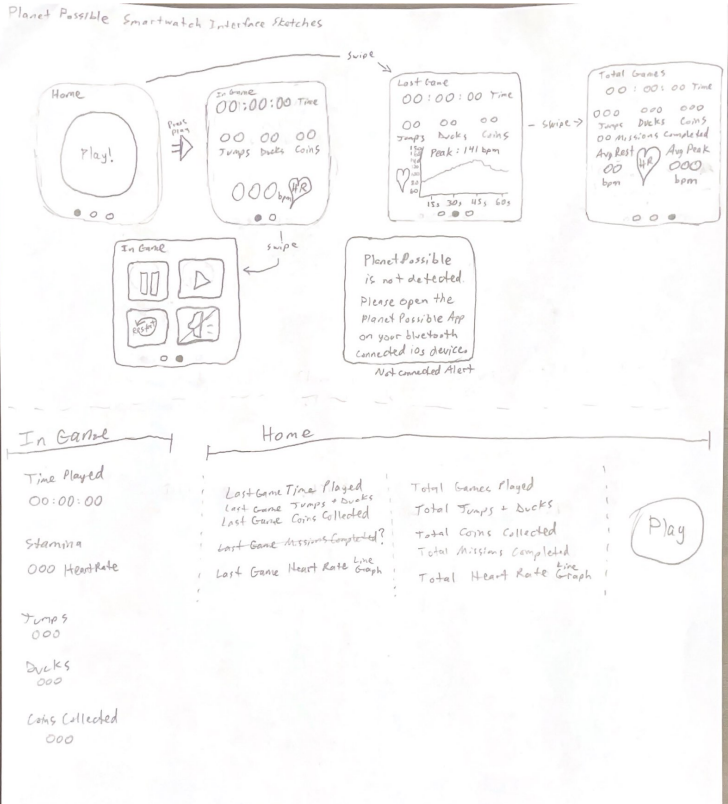 Planet Possible Smartwatch Interface Sketches
Swipe
Home
Play!
Press Play
In Game
00:00:00 Time
00 00 00
Jumps Ducks Coins
000 bpm HR
Swipe
Last Game
00:00:00 Time
00 00 00
Jumps Ducks Coins
Peak: 141 bpm
15s 30s 45s 60s
- Swipe →
Total Games
00:00:00 Time
000 000 000
Jumps Ducks Coins
00 Missions Completed
Avg Rest HR Avg Peak
00 000
bpm bpm
In Game
Planet Possible
is not detected
Please open the
Planet Possible App
on your bluetooth
connected ios device.
Not Connected Alert
In Game
Time Played
00:00:00
Stamina
000 HeartRate
Jumps
000
Ducks
000
Coins Collected
000
Home
Last Game Time Played
Last Game Jumps + Ducks
Last Game Coins Collected
Last Game Missions Completed?
Last Game Heart Rate Line Graph
Total Games Played
Total Jumps + Ducks
Total Coins Collected
Total Missions Completed
Total Heart Rate Line Graph
Play